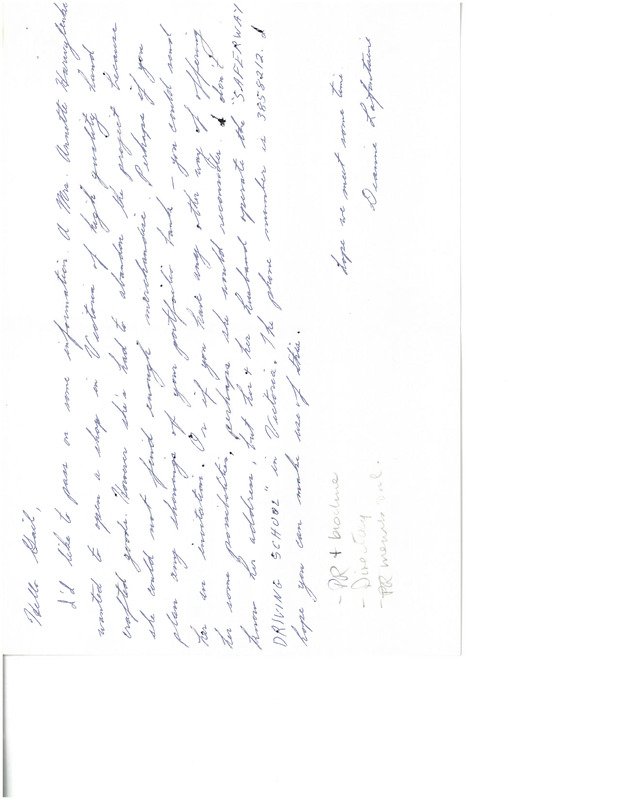 Hello Gail,
I'd like to pass on some information. A Mrs. Annette
wanted to open a shop in Victoria of high quality hand
crafted goods. However she's had to abandon the project because
she could not find enough merchandise. Perhaps if you
plan any showings of your portfolio bank - you could send
her an invitation. Or if you have any other way of offering
her some possibilities, perhaps she would reconsider. I don't
know her address, but her & her husband operate the "SAFERWAY
DRIVING SCHOOL" in Victoria. The phone number is 3858212. I
hope you can make use of this.
hope we meet some time
Deanne
- PR + brochure
- Directory
- PR members